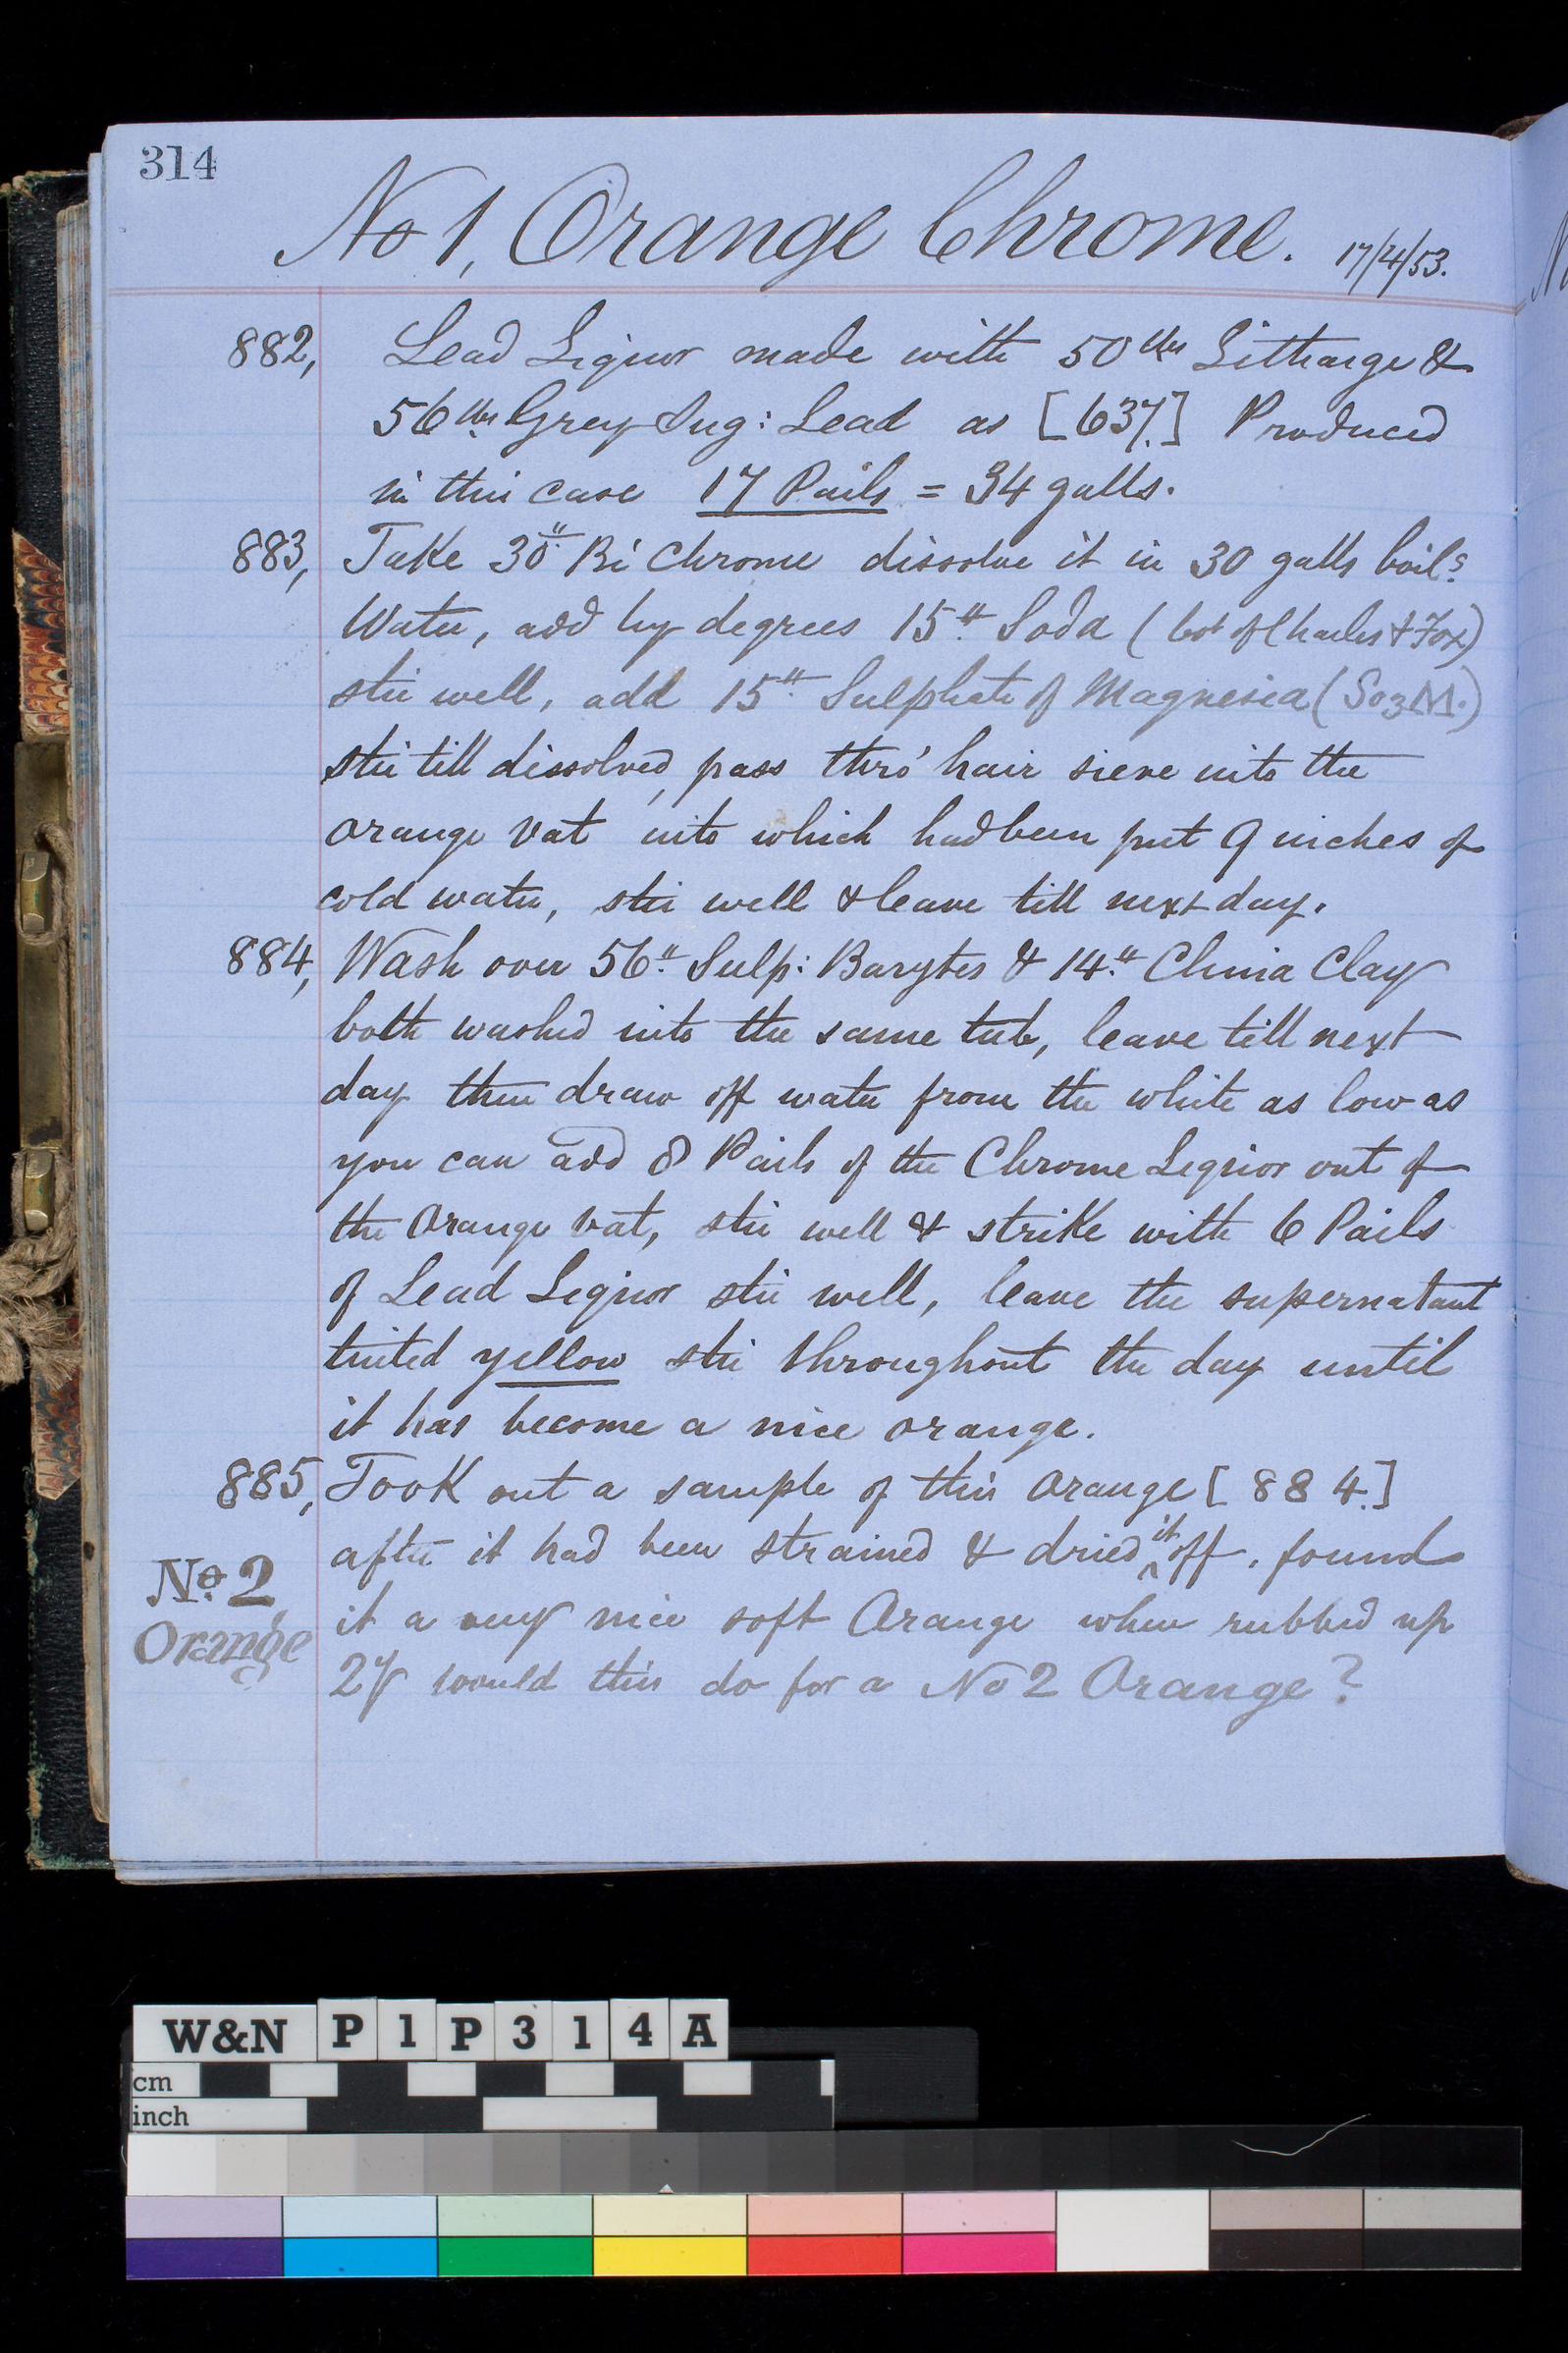 314
No 1, Orange Chrome. 17/4/53.
882, Lead Liquor made with 50 lbs Litharge &
56 lbs Grey Sug: Lead as [637.] Produced
in this case 17 Pails = 34 galls.
883, Take 30 lb Bi Chrome dissolve it in 30 galls boilg
Water, add by degrees 15 lb Soda (bot of Charles & Fox)
stir well, add 15 lb Sulphate of Magnesia (So3M.)
stir till dissolved, pass thro' hair sieve into the
orange vat into which had been put 9 inches of
cold water, stir well & leave till next day.
884, Wash over 56 lb Sulp: Barytes & 14 lb China Clay
both washed into the same tub, leave till next
day then draw off water from the white as low as
you can add 8 Pails of the Chrome Liquor out of
the Orange vat, stir well & strike with 6 Pails
of Lead Liquor stir well, leave the supernatant
tinted yellow stir throughout the day until
it has become a nice orange.
885, Took out a sample of this Orange [884.]
after it had been strained & dried it off, found
No. 2 Orange
it a very nice soft Orange when rubbed up
2y would this do for a No 2 Orange?
W&N P1P314A
cm
inch